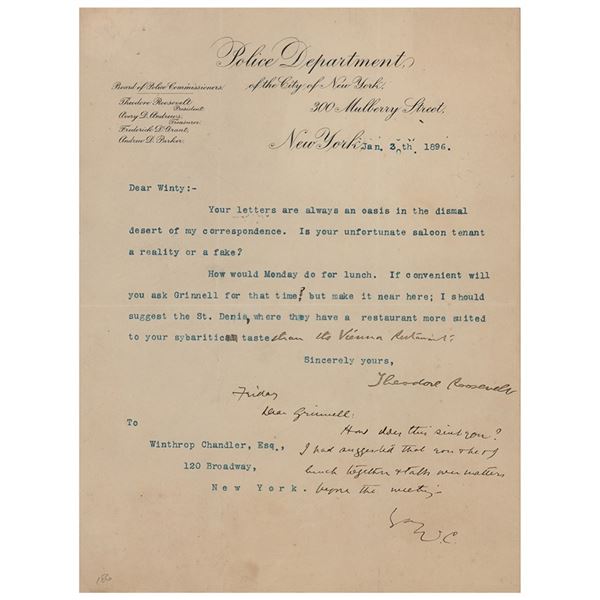 Police Department
of the City of New York,
300 Mulberry Street,
Board of Police Commissioners.
Theodore Roosevelt
President.
Avery D. Andrews,
Treasurer.
Frederick D. Grant,
Andrew D. Parker.
New York, Jan. th. 1896.
Dear Winty:-
Your letters are always an oasis in the dismal
desert of my correspondence. Is your unfortunate saloon tenant
a reality or a fake?
How would Monday do for lunch. If convenient will
you ask Grinnell for that time? but make it near here; I should
suggest the St. Denis, where they have a restaurant more suited
to your sybaritic taste than the Vienna Restaurant.
Sincerely yours,
Theodore Roosevelt
Friday
Dear Grinnell:
How does this suit you?
I had suggested that you & he & I
lunch together & talk over matters
before the meeting
W.C.
To
Winthrop Chandler, Esq.,
120 Broadway,
New York.